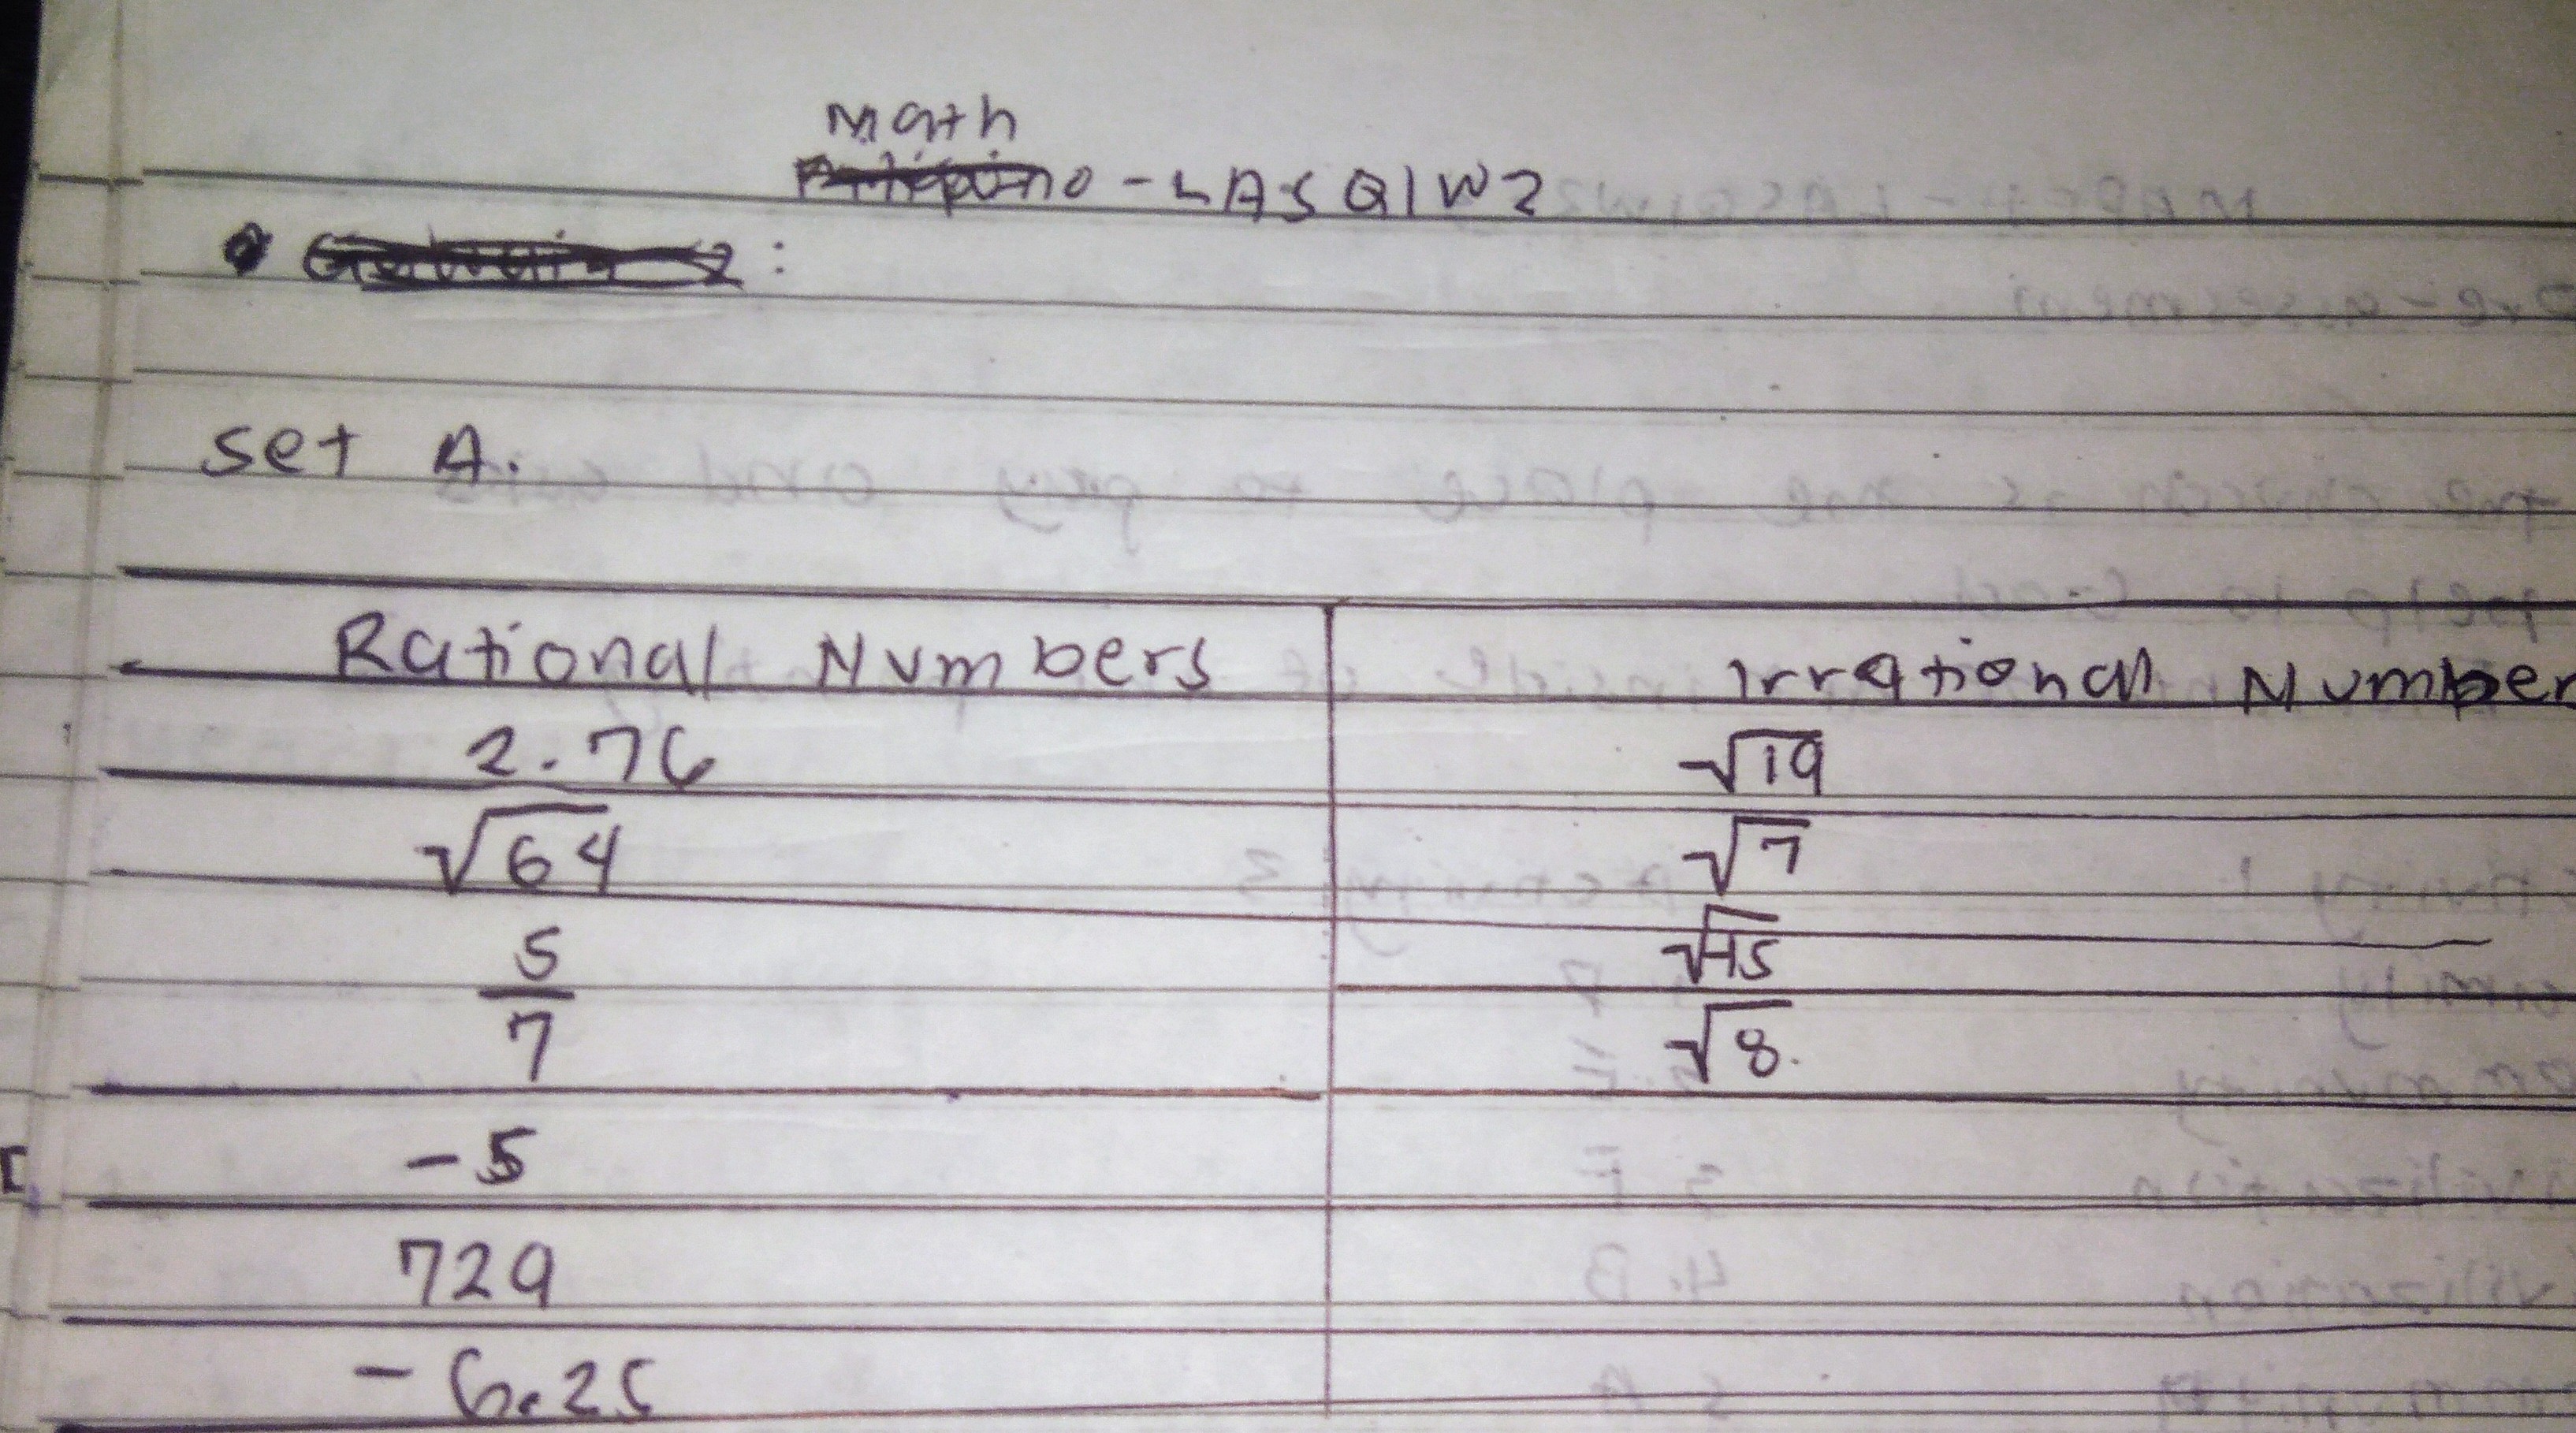 Math
- LAS Q1W2
:
set A.
Rational Numbers Irrational Number
2.76 √19
√64 √7
5/7 √15
-5 √8.
729
-6.25